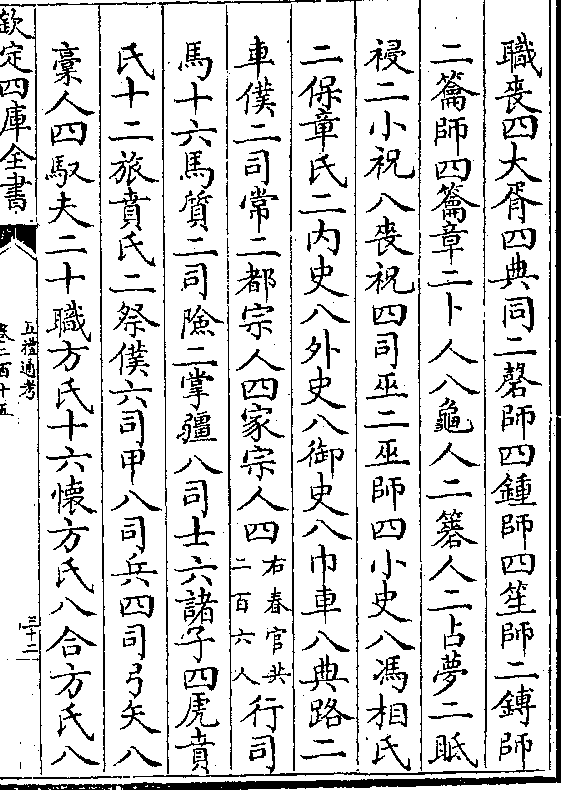 職喪四大胥四典同二磬師四鍾師四笙師二鎛師
二籥師四籥章二卜人八龜人二簭人二占夢二眡
祲二小祝八喪祝四司巫二巫師四小史八馮相氏
二保章氏二内史八外史八御史八巾車八典路二
車僕二司常二都宗人四家宗人四右春官共二百六人行司
馬十六馬質二司險二掌疆八司士六諸子四虎賁
氏十二旅賁氏二祭僕六司甲八司兵四司弓矢八
稾人四馭夫二十職方氏十六懷方氏八合方氏八
欽定四庫全書
五禮通考
卷二百十五
三十二